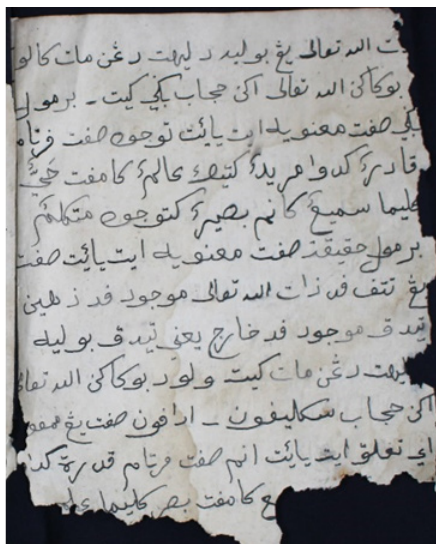 ت الله تعالى يڠ بوليه د ليهت دڠن مات كالو
بوكاكن الله تعالى اكن حجاب بكي كيت ـ برمول
بكي صفت معنويه ايت يائيت توجوه صفت فرتام
قادرا كدوا مريدا كتيك عالما كامفت حيّا
كليما سميعا كانم بصيرا كتوجوه متكلما
برمول حقيقة صفت معنويه ايت يائيت صفت
يڠ تتف فد ذات الله تعالى موجود فد ذهين
تيدق موجود فد خارج يعني تيدق بوليه
ليهت دڠن مات كيت ولو د بوكاكن الله تعالى
اكن حجاب سكليفون ـ ادافون صفت يڠ
اي تعلق ايت يائيت انم صفت فرتام قدرة كدوا
ع كامفت بصر كليما